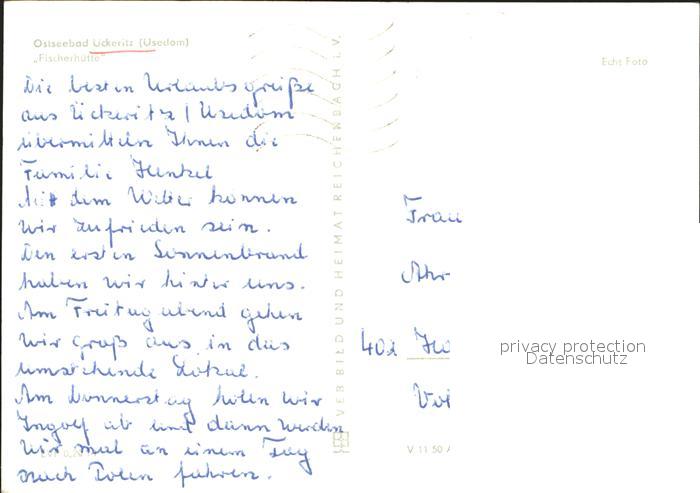 Ostseebad Ückeritz (Usedom)
„Fischerhütte"
Echt Foto
Die besten Urlaubsgrüße
aus Ückeritz / Usedom
übermitteln Ihnen die
Familie Henkel
Mit dem Wetter können
wir zufrieden sein.
Den ersten Sonnenbrand
haben wir hinter uns.
Am Freitag abend gehen
wir groß aus in das
umstehende Lokal.
Am Donnerstag holen wir
Ingolf ab und dann werden
wir mal an einem Tag
nach Polen fahren.
VEB BILD UND HEIMAT REICHENBACH i. V.
Frau
Ahr
402 Ho
V 11 50 A
privacy protection
Datenschutz